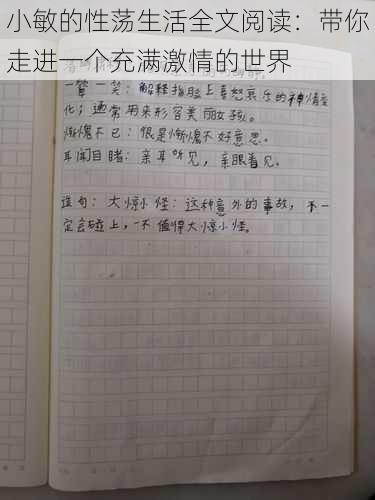 小敏的性荡生活全文阅读：带你
走进一个充满激情的世界
一颦一笑：解释指脸上喜怒哀乐的神情变
化；通常用来形容美丽女孩。
惭愧不已：很是惭愧不好意思。
耳闻目睹：亲耳听见，亲眼看见。
造句：大惊小怪：这种意外的事故，不一
定会碰上，不值得大惊小怪。